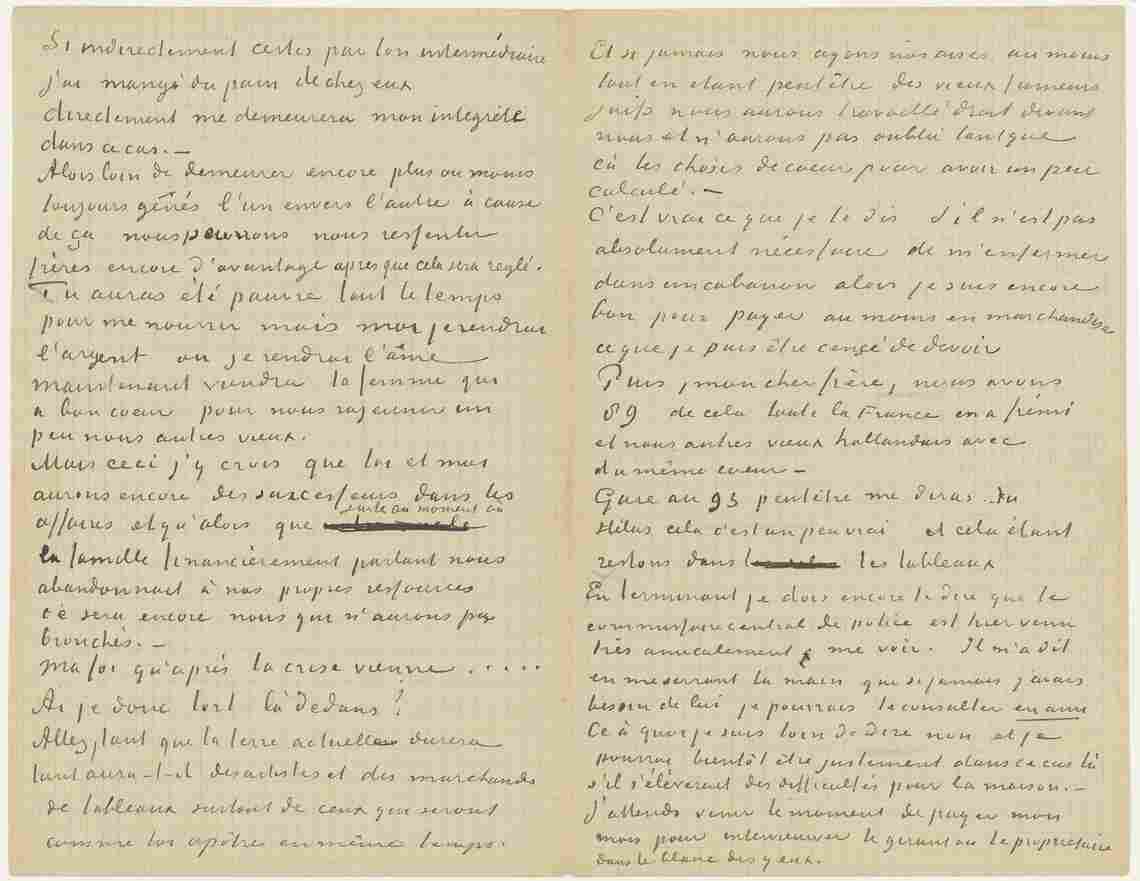 Si indirectement certes par ton intermédiaire
j'ai mangé du pain de chez eux
directement me demeurera mon intégrité
dans ce cas. —
Alors loin de demeurer encore plus ou moins
toujours gênés l'un envers l'autre à cause
de ça nous pourrons nous ressentir
frères encore d'avantage après que cela sera reglé.
Tu auras été pauvre tout le temps
pour me nourrir mais moi je rendrai
l'argent ou je rendrai l'âme
maintenant viendra ta femme qui
a bon coeur pour nous rajeunir un
peu nous autres vieux.
Mais ceci j'y crois que toi et moi
aurons encore des successeurs dans les
affaires et qu'alors que juste au moment où
la famille financièrement parlant nous
abandonnait à nos propres ressources
cè sera encore nous qui n'aurons pas
bronchés. —
Ma foi qu'aprés la crise vienne . . . . .
Ai je donc tort là dedans?
Allez, tant que la terre actuelle durera
tant aura-t-il des artistes et des marchands
de tableaux surtout de ceux qui seront
comme toi apôtre en même temps.
Et si jamais nous ayons nos aises au moins
tout en étant peutêtre des vieux fumeurs
juifs nous aurons travaillé droit devant
nous et n'aurons pas oublié tant que
cà les choses de coeur pour avoir un peu
calculé. —
C'est vrai ce que je te dis s'il n'est pas
absolument nécessaire de m'enfermer
dans un cabanon alors je suis encore
bon pour payer au moins en marchandise
ce que je puis être censé de devoir
Puis, mon cher frère, nous avons
89 de cela toute la France en a frémi
et nous autres vieux hollandais avec
du même coeur —
Gare au 93 peutêtre me diras Tu
Hélas cela c'est un peu vrai et cela étant
restons dans les tableaux
En terminant je dois encore te dire que le
commissaire central de police est hier venu
très amicalement me voir. Il m'a dit
en me serrant la main que si jamais j'avais
besoin de lui je pourrais le consulter en ami
Ce à quoi je suis loin de dire non et je
pourrai bientôt être justement dans ce cas là
s'il s'élèverait des difficultés pour la maison. —
J'attends venir le moment de payer mon
mois pour interviewer le gérant ou le propriétaire
dans le blanc des yeux.